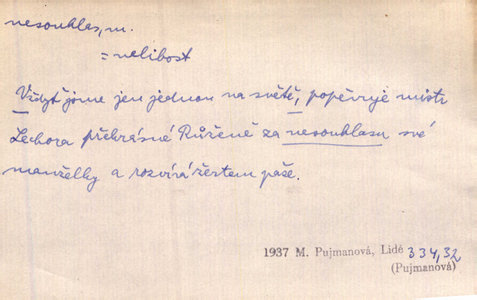 nesouhlas, m.
= nelibost
Vždyť jsme jen jednou na světě, popěvuje mistr
Lechora překrásné Růženě za nesouhlasu své
manželky a rozvírá žertem paže.
1937 M. Pujmanová, Lidé 334,32
(Pujmanová)